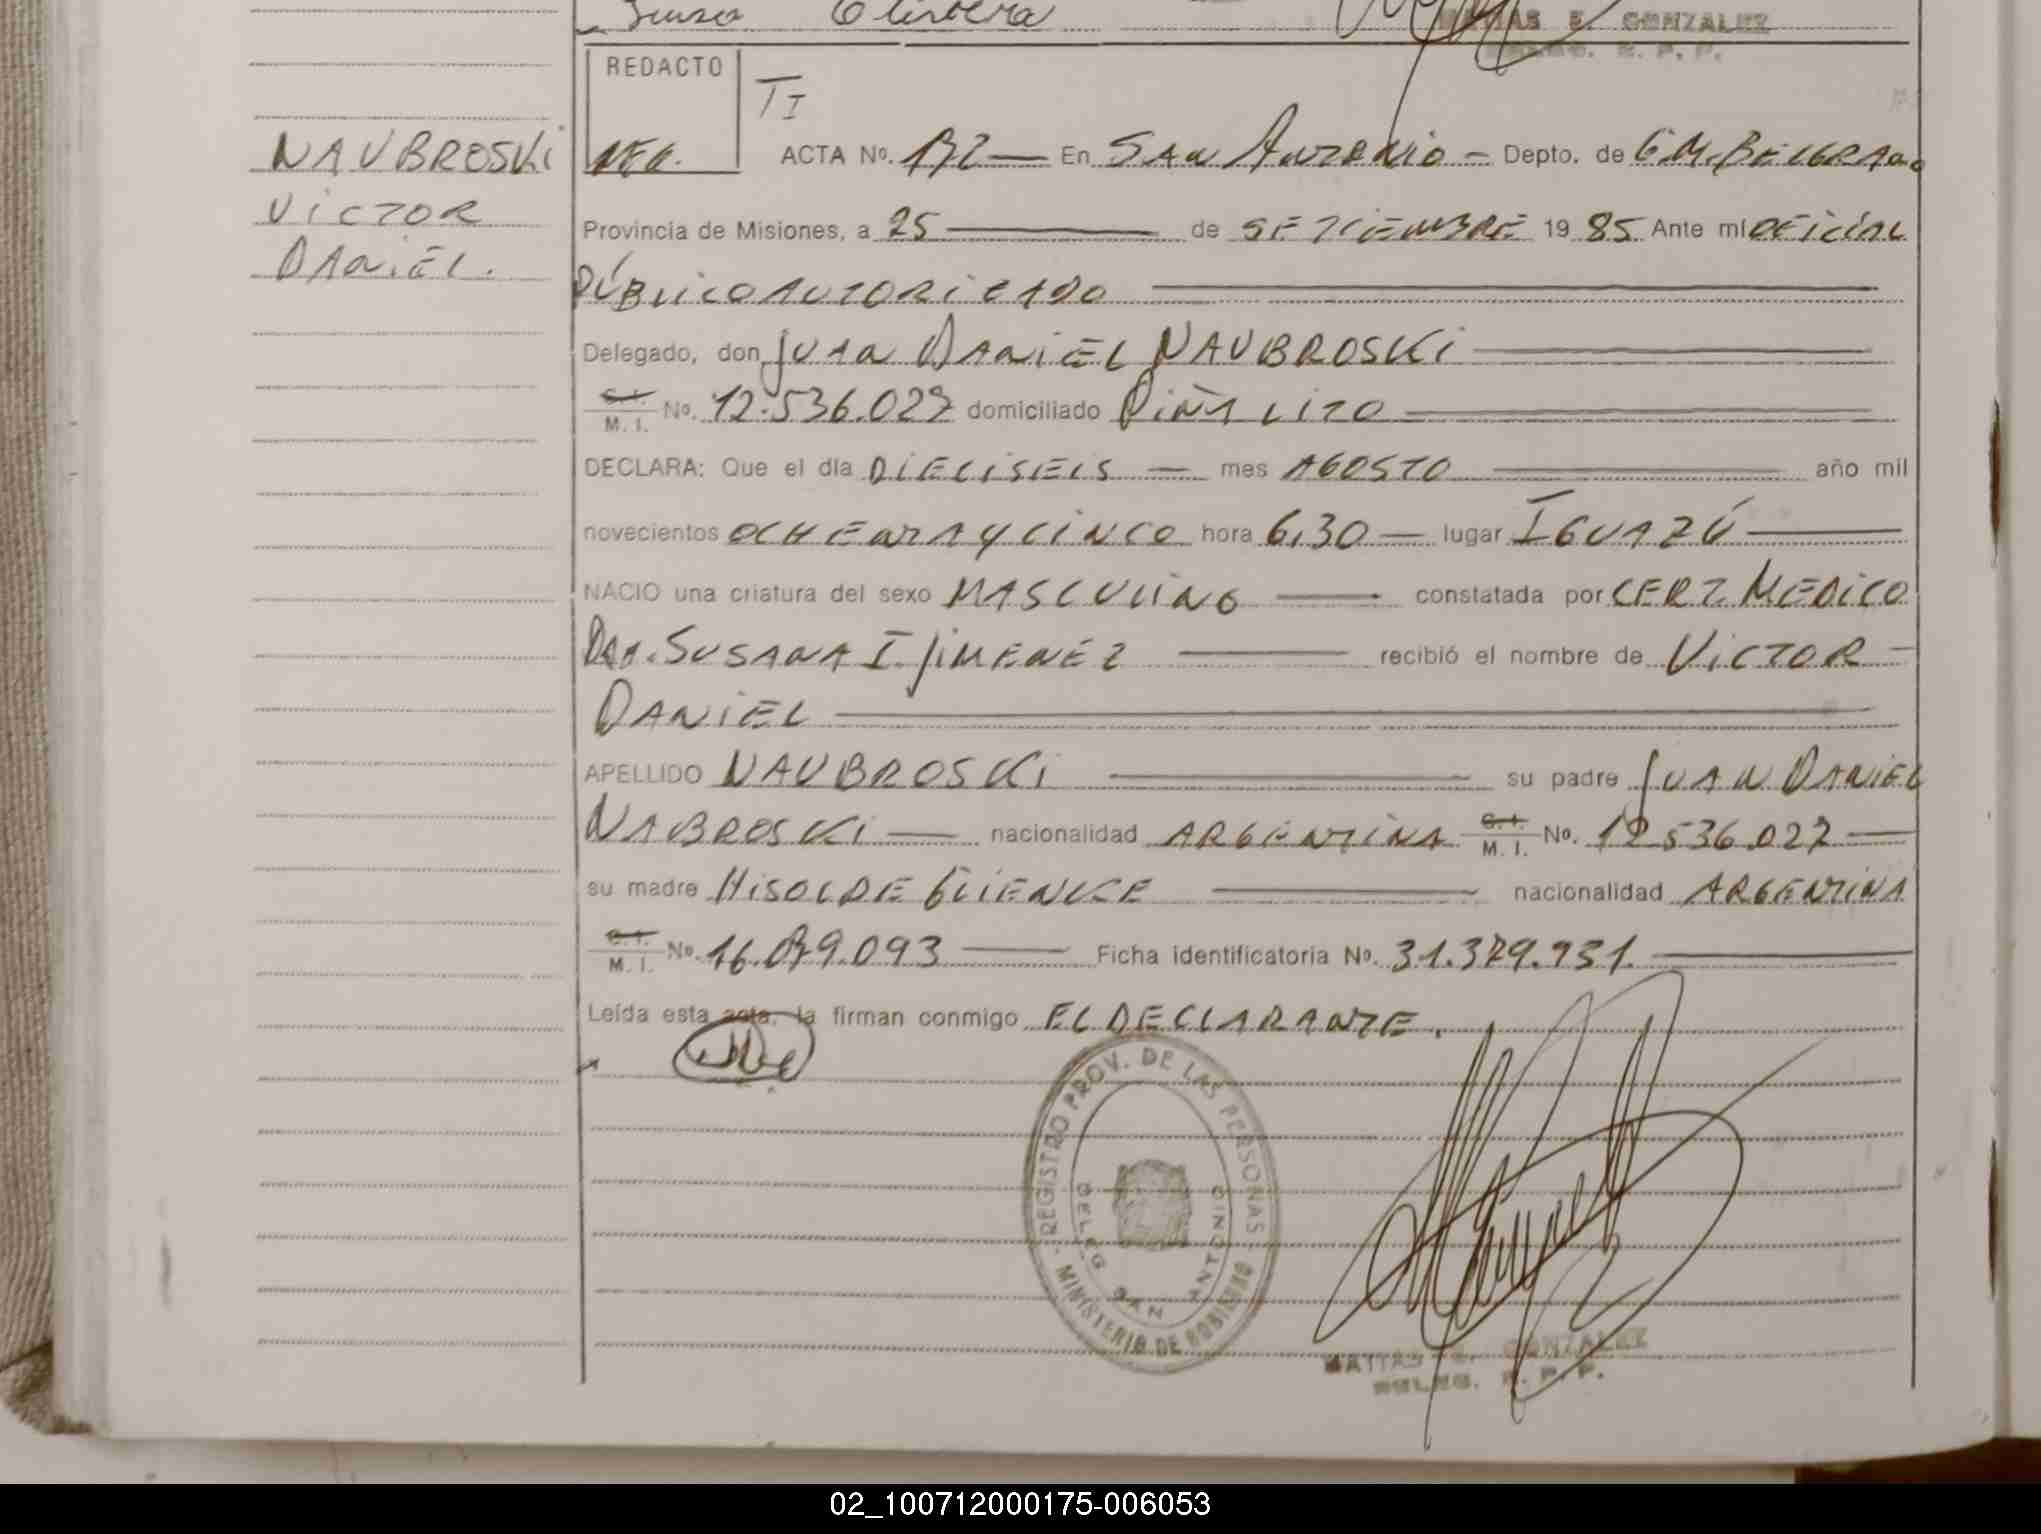 MATIAS E. GONZALEZ
DELEG. R. P. P.
REDACTO
TI
NAUBROSKi
ViCTOR
DANiEL.
ACTA No. 132 En SAN ANTONiO - Depto. de G.M. BELGRANO
Provincia de Misiones, a 25 de SETiEMBRE 1985 Ante mí OFiCiAL
PÚBLiCO AUTORiZADO
Delegado, don JUAN DANiEL NAUBROSKi
C.I. M. I. No. 12.536.027 domiciliado PiÑALiTO
DECLARA: Que el día DiECiSEiS mes AGOSTO año mil
novecientos OCHENTA Y CiNCO hora 6,30 lugar IGUAZÚ
NACIO una criatura del sexo MASCULiNO constatada por CERT. MEDiCO
DRA. SUSANA I. JiMENEZ recibió el nombre de ViCTOR
DANiEL
APELLIDO NAUBROSKi su padre JUAN DANiEL
NABROSKi nacionalidad ARGENTiNA C.I. M. I. No. 12.536.027
su madre HiSOLDE GLiENKE nacionalidad ARGENTiNA
C.I. M. I. No. 16.079.093 Ficha identificatoria No. 31.379.931.
Leída esta acta, la firman conmigo EL DECLARANTE.
REGISTRO PROV. DE LAS PERSONAS
MINISTERIO DE GOBIERNO
DELEG. SAN ANTONIO
MATIAS E. GONZALEZ
DELEG. R. P. P.
02_100712000175-006053